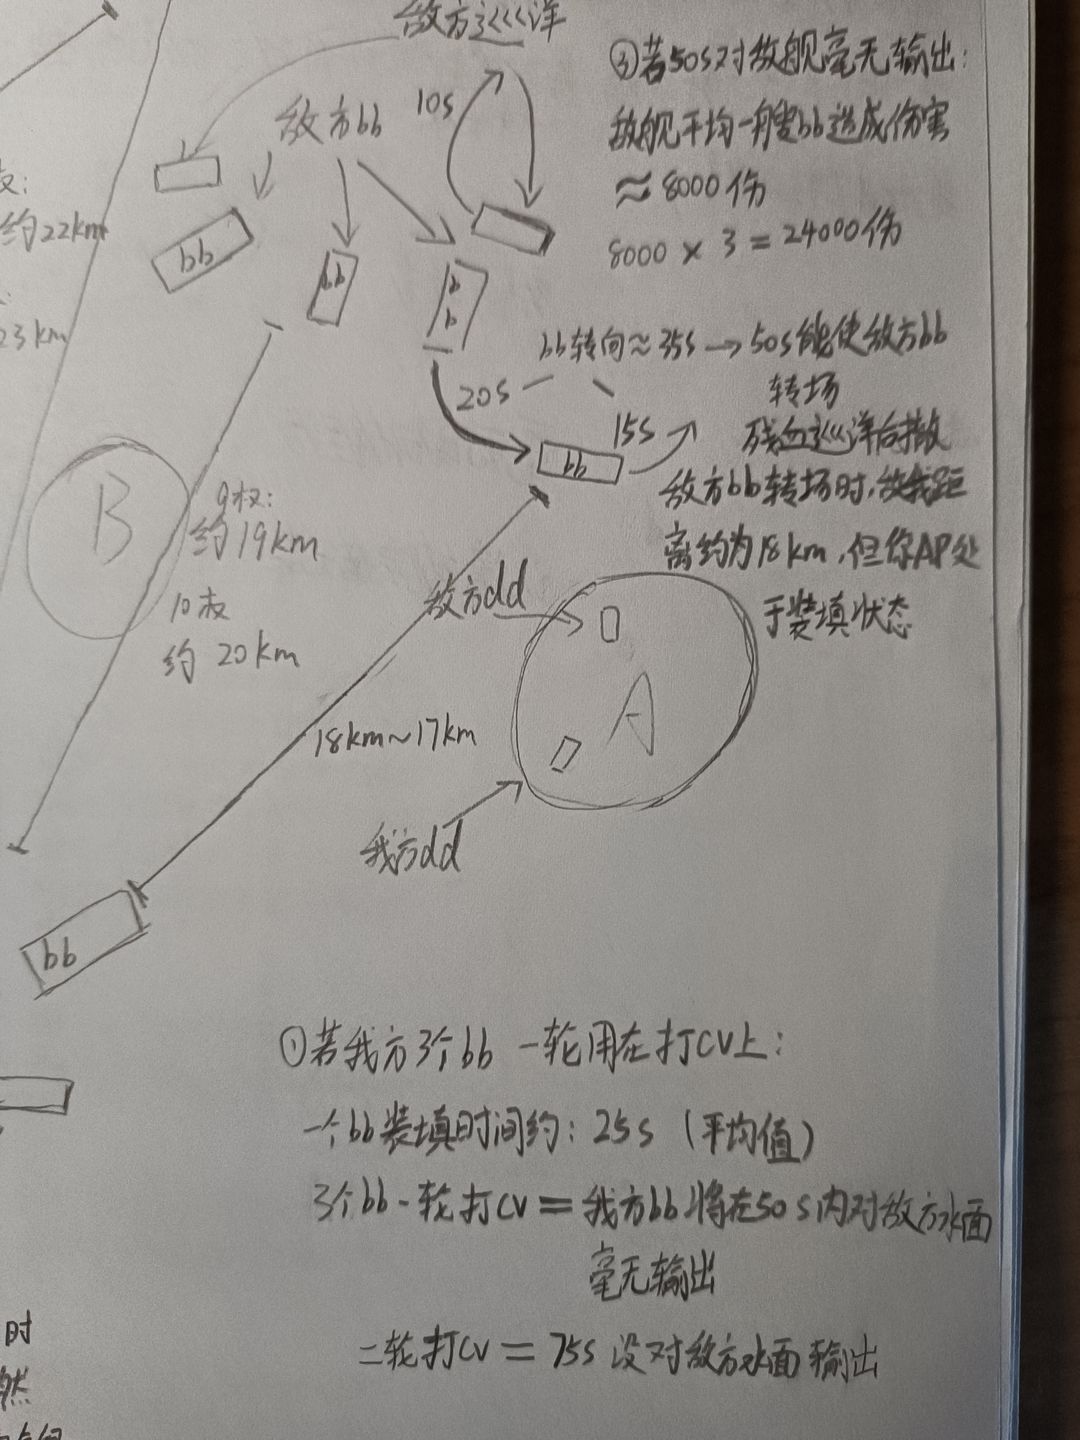 敌方巡洋
敌方bb
10s
③若50s对敌舰毫无输出:
敌舰平均一艘bb造成伤害
≈8000伤
8000 × 3 = 24000伤
约22km
23km
bb
bb
bb
bb转向≈35s→50s能使敌方bb
转场
20s
15s
残血巡洋后撤
bb
敌方bb转场时,敌我距
离约为18km,但你AP处
于装填状态
B
9杈:
约19km
10杈
约 20km
敌方dd
A
18km~17km
我方dd
bb
①若我方3个bb 一轮用在打CV上:
一个bb装填时间约: 25s (平均值)
3个bb一轮打CV = 我方bb将在50s内对敌方水面
毫无输出
二轮打CV = 75s没对敌方水面输出
时
然